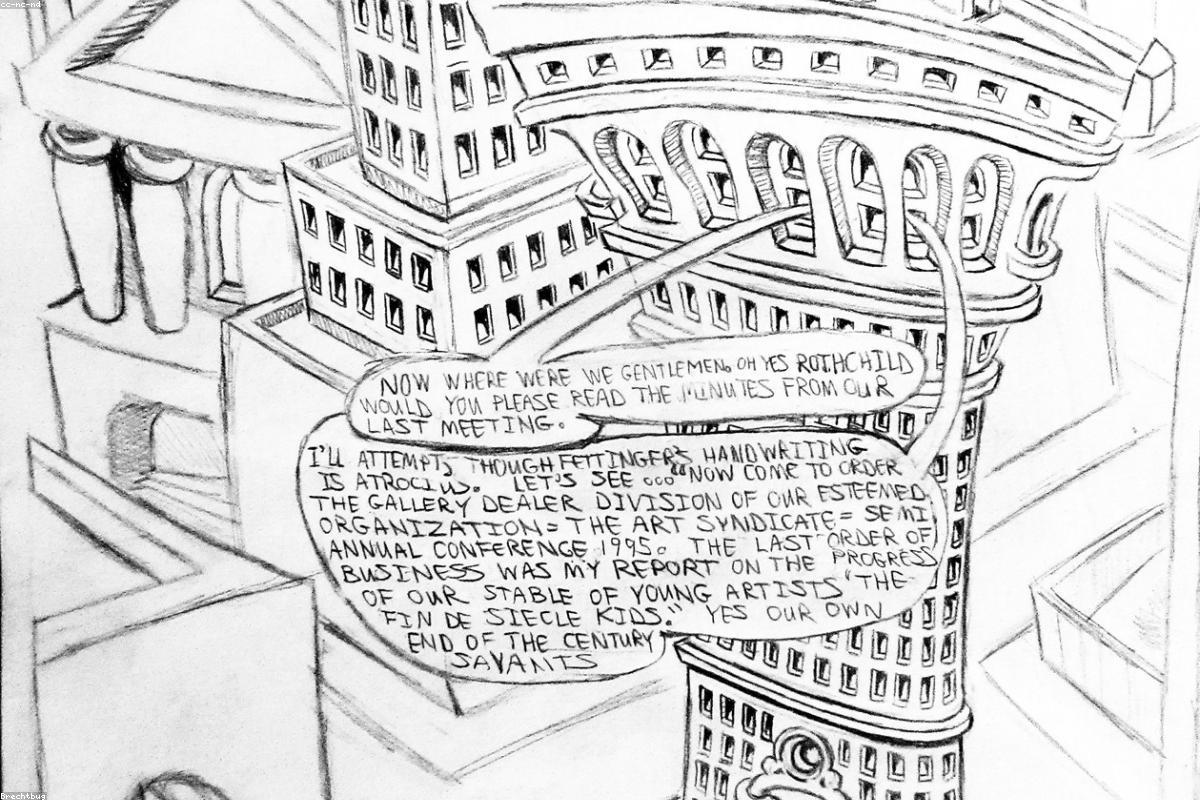 cc-nc-nd
NOW WHERE WERE WE GENTLEMEN. OH YES ROTHCHILD
WOULD YOU PLEASE READ THE MINUTES FROM OUR
LAST MEETING.
I'LL ATTEMPT, THOUGH FETTINGER'S HANDWRITING
IS ATROCIUS. LET'S SEE ... "NOW COME TO ORDER
THE GALLERY DEALER DIVISION OF OUR ESTEEMED
ORGANIZATION = THE ART SYNDICATE = SEMI
ANNUAL CONFERENCE 1995. THE LAST ORDER OF
BUSINESS WAS MY REPORT ON THE PROGRESS
OF OUR STABLE OF YOUNG ARTISTS 'THE
FIN DE SIECLE KIDS." YES OUR OWN
END OF THE CENTURY
SAVANTS
Brechtbug